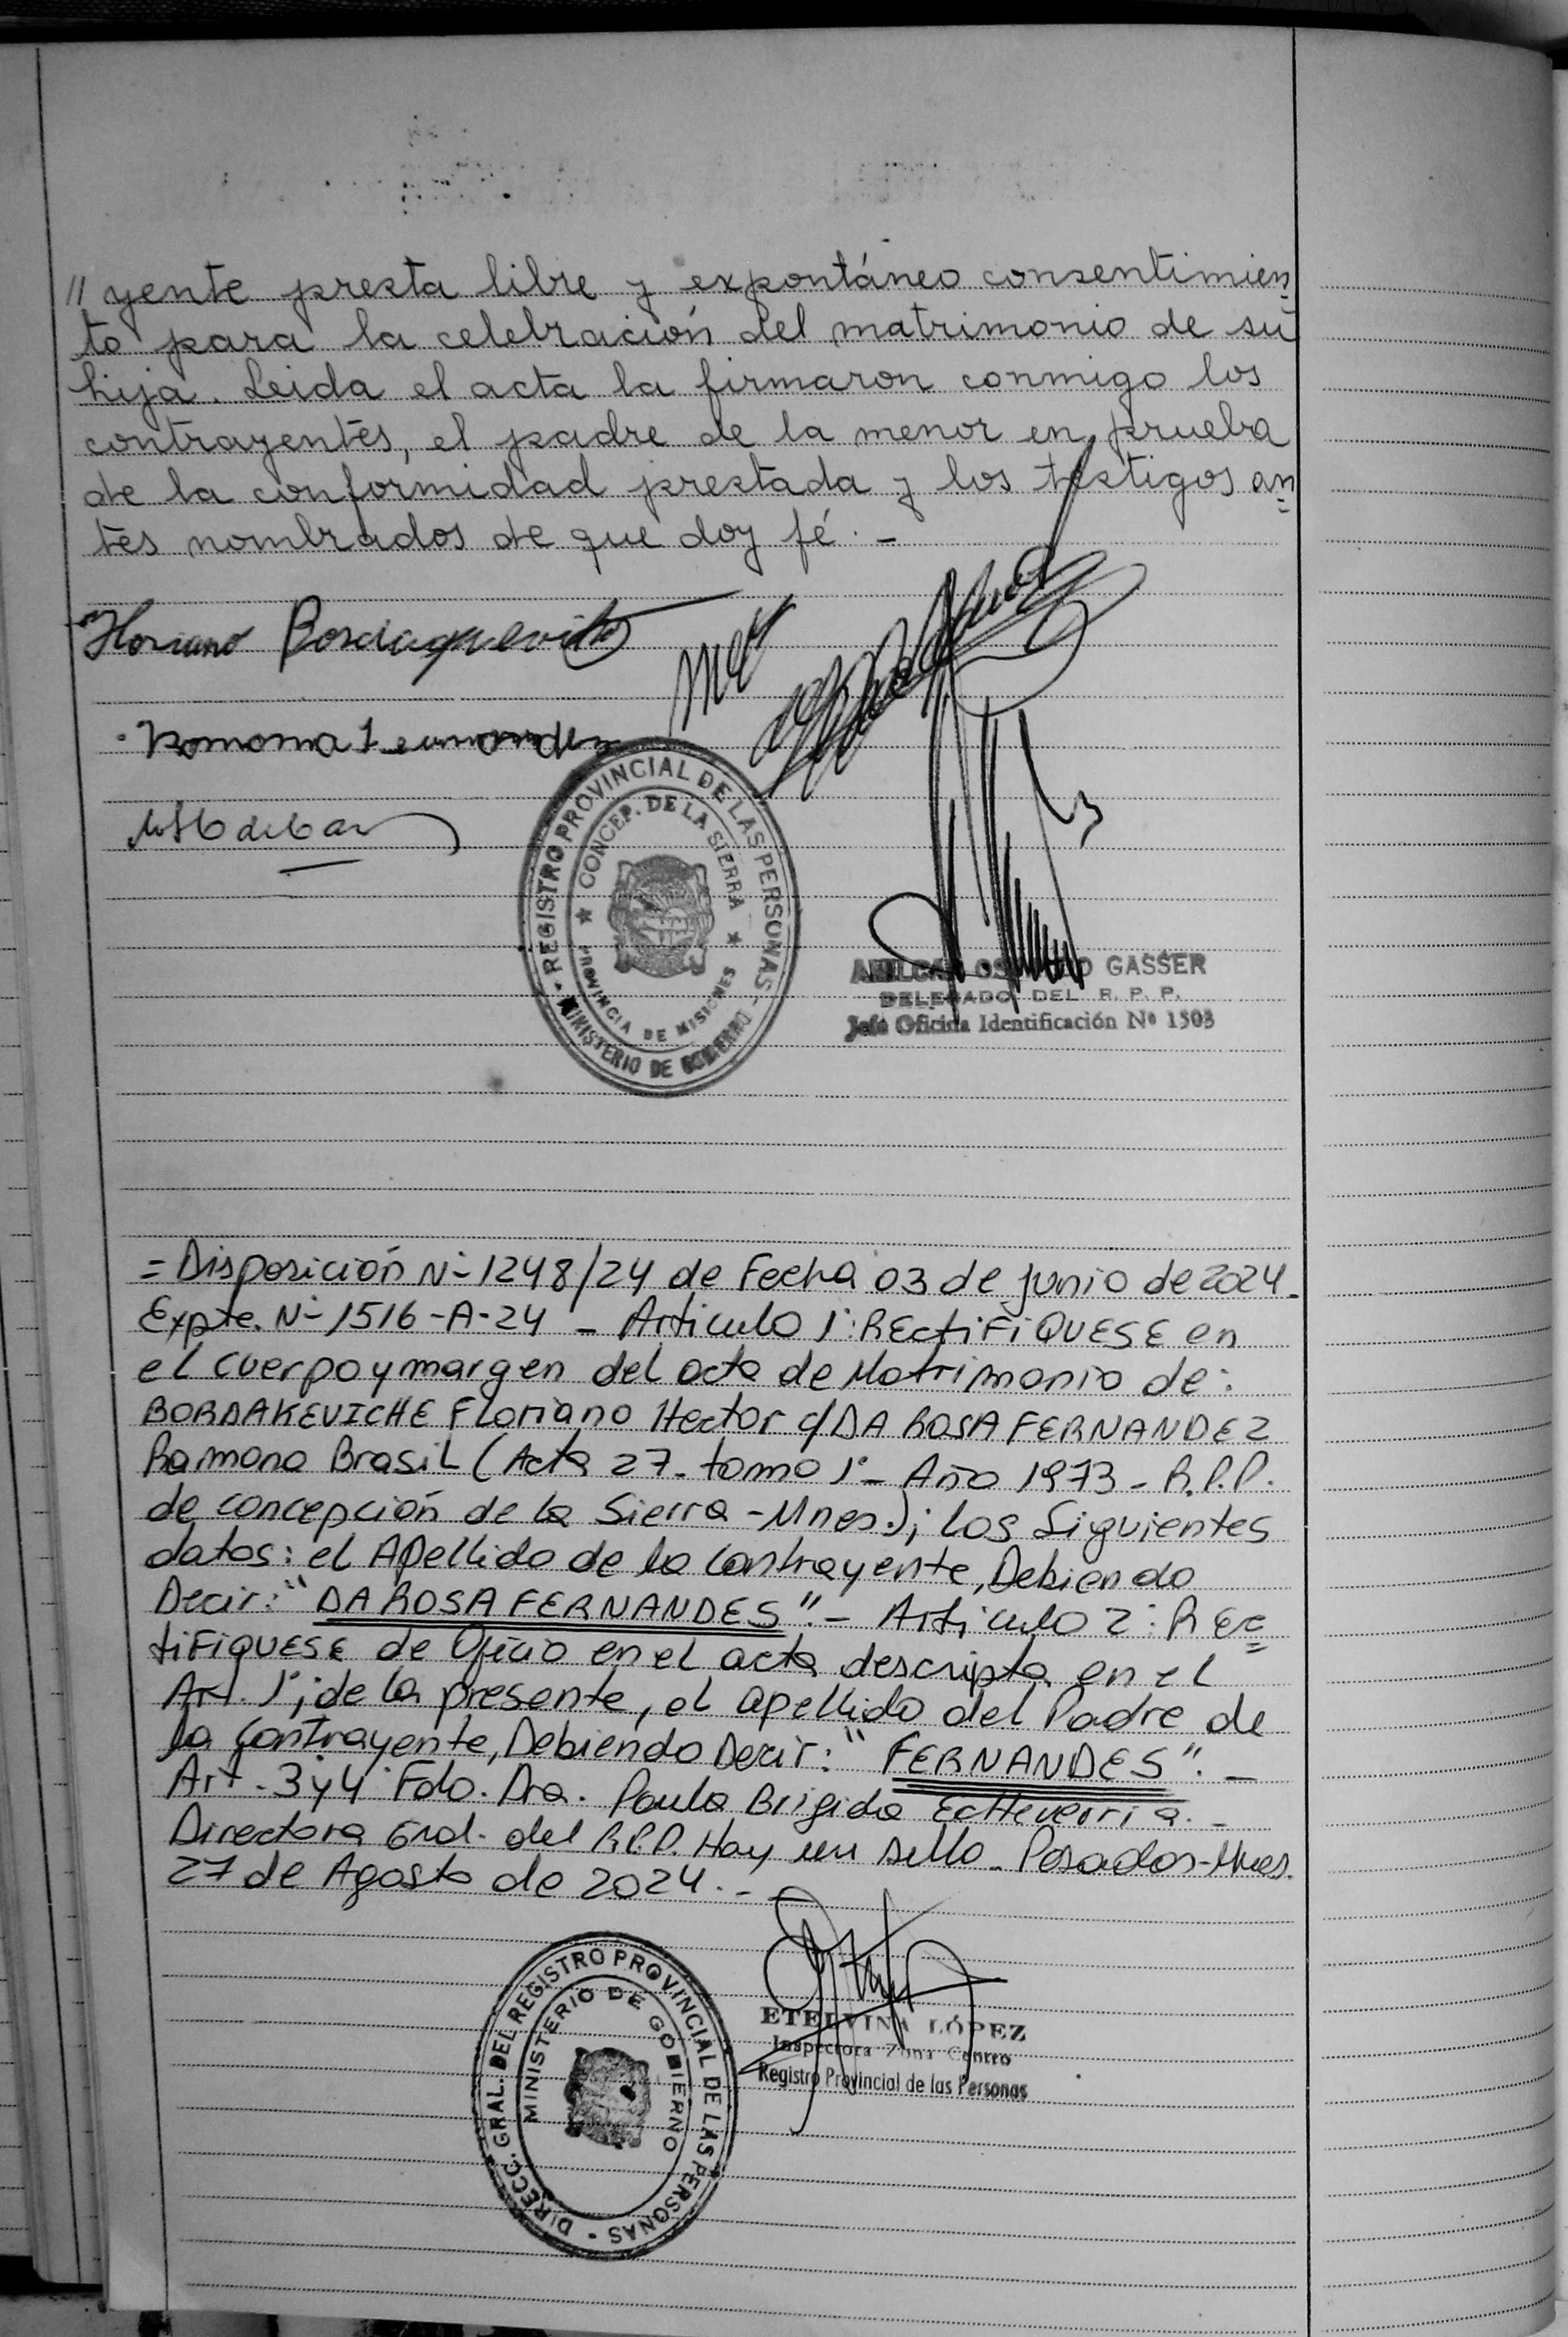 // yente presta libre y expontáneo consentimien-
to para la celebración del matrimonio de su
hija. Leida el acta la firmaron conmigo los
contrayentes, el padre de la menor en prueba
de la conformidad prestada y los testigos an=
tes nombrados de que doy fé. -
Floriano
Ramona
REGISTRO PROVINCIAL DE LAS PERSONAS - MINISTERIO DE GOBIERNO -
★ CONCEP. DE LA SIERRA ★
PROVINCIA DE MISIONES
GASSER
DELEGADO DEL R. P. P.
Jefe Oficina Identificación Nº 1503
= Disposición Nº 1248/24 de Fecha 03 de junio de 2024-
Expte. Nº 1516-A-24 - Articulo 1º: RECtiFiQUESE en
el cuerpo y margen del acta de Matrimonio de:
BORDAKEVICHE Floriano Hector c/ DA ROSA FERNANDEZ
Ramona Brasil (Acta 27- tomo 1º- Año 1973 - R.P.P.
de Concepción de la Sierra - Mnes.); los Siguientes
datos: el Apellido de la Contrayente, Debiendo
Decir: "DA ROSA FERNANDES".- Articulo 2º: REc=
tiFiQUESE de Oficio en el acta descripta en el
Art. 1º; de la presente, el apellido del Padre de
la Contrayente, Debiendo Decir: "FERNANDES". -
Art. 3 y 4 Fdo. Dra. Paula Brigida Echeverria. -
Directora Gral. del R.P.P. Hay un sello - Posadas-Mnes.
27 de Agosto de 2024. - -
DIRECC. GRAL. DEL REGISTRO PROVINCIAL DE LAS PERSONAS -
MINISTERIO DE GOBIERNO
ETELVINA LÓPEZ
Inspectora Zona Centro
Registro Provincial de las Personas